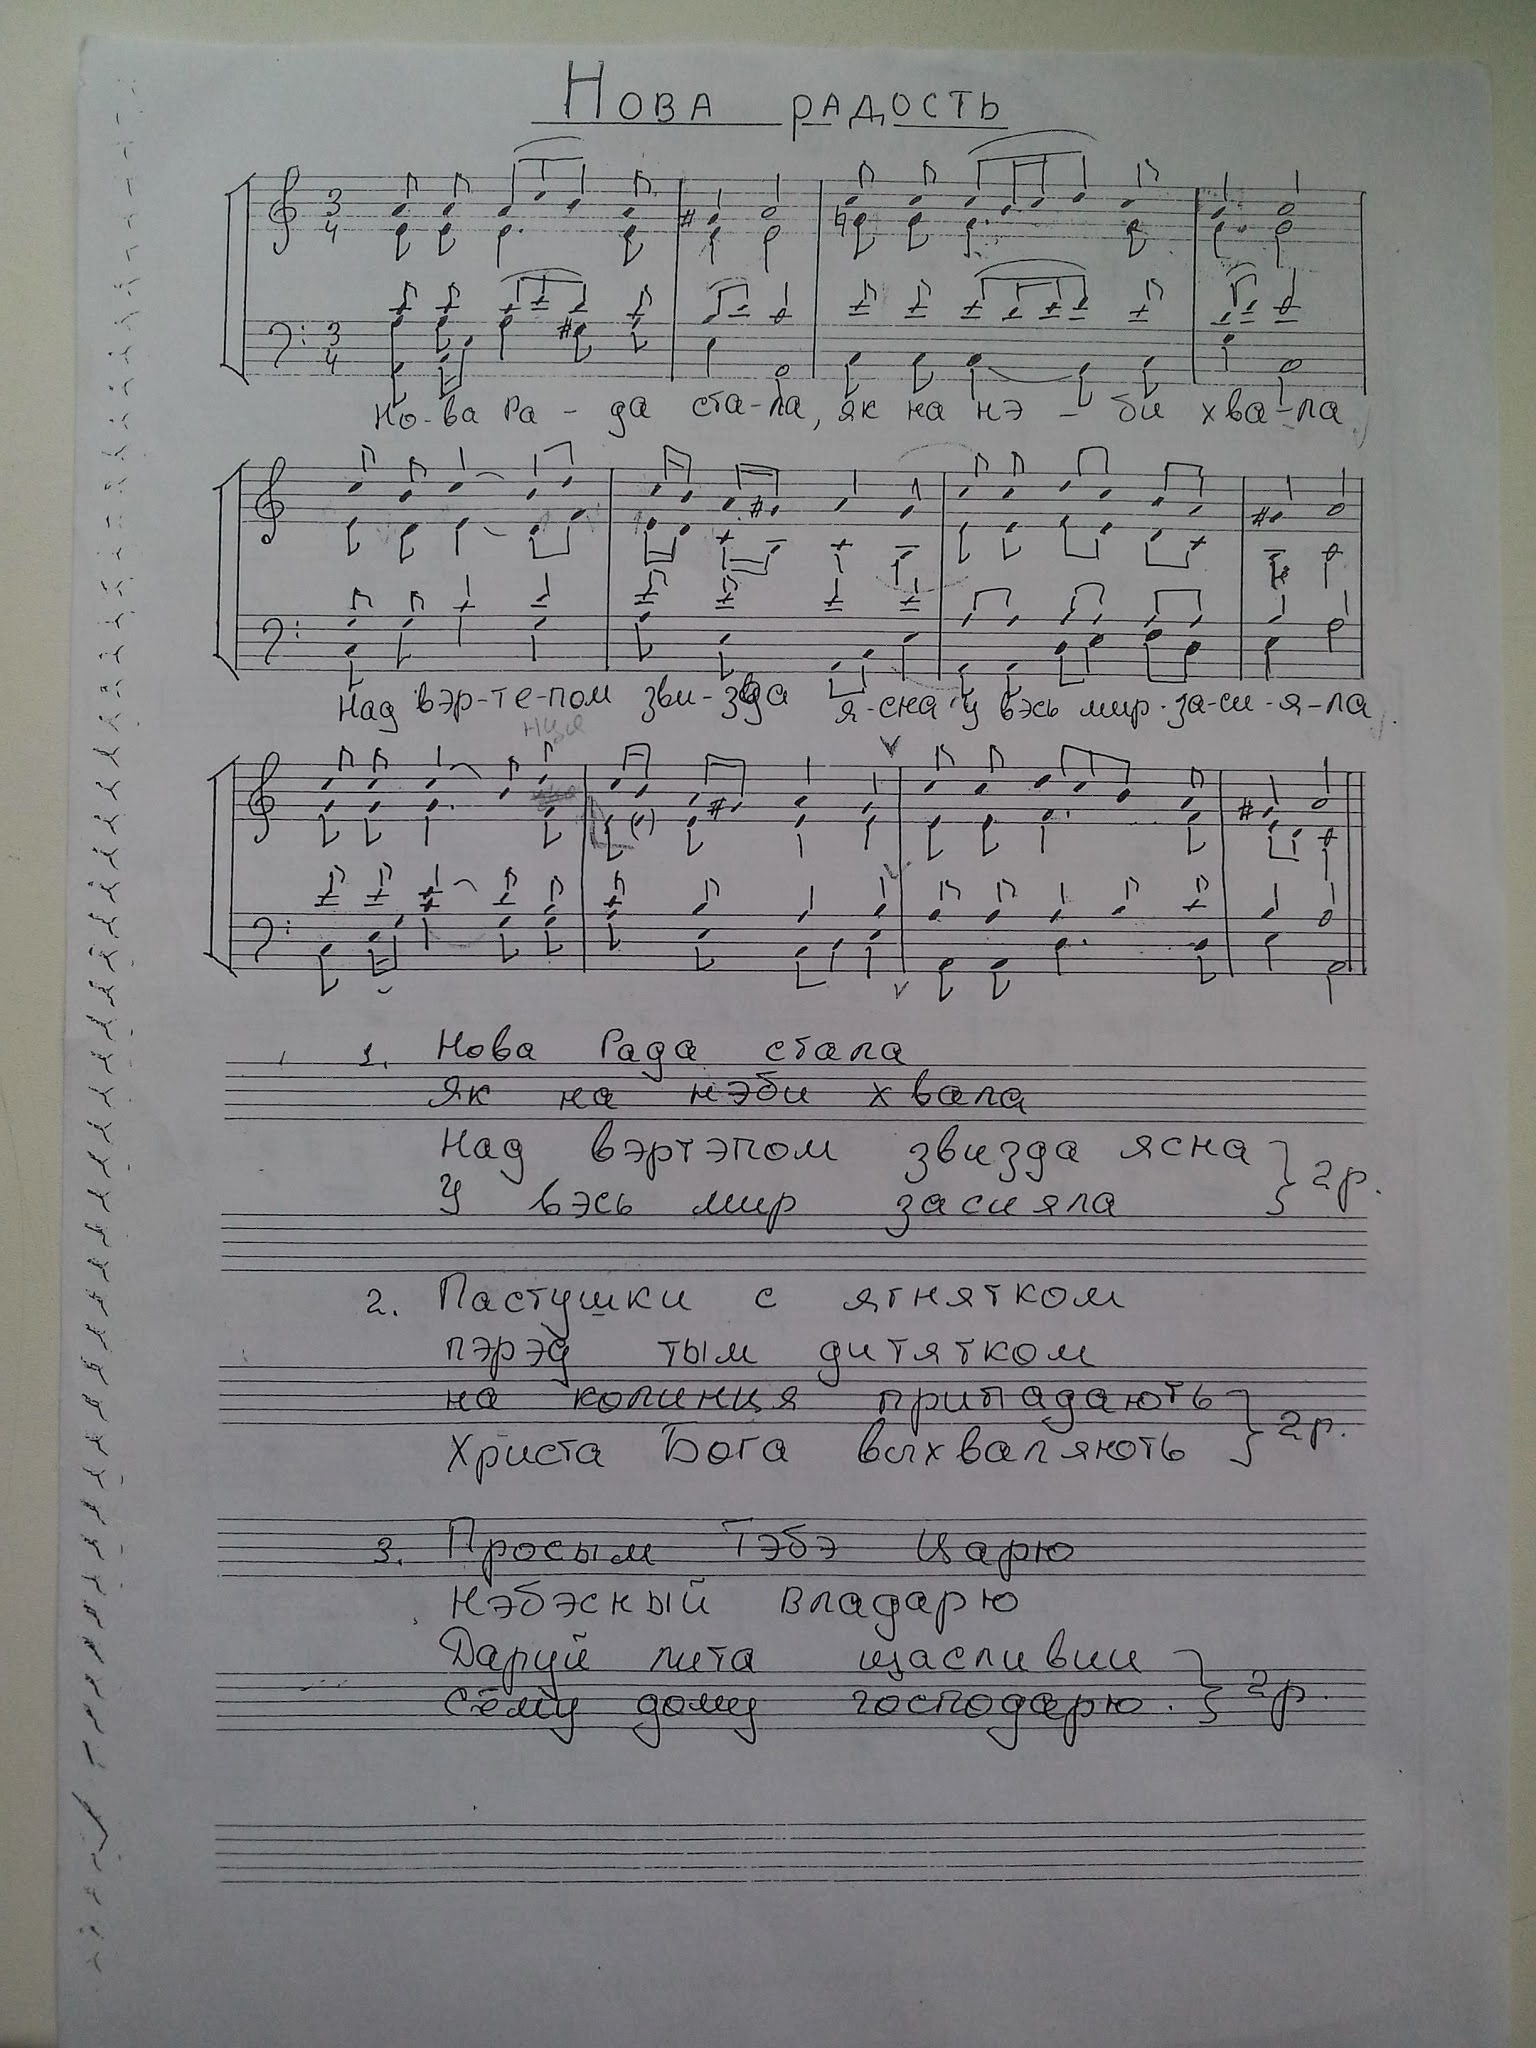 Нова радость
3
4
3
4
Но-ва Ра - да ста-ла, як на нэ - би хва-ла
Над вэр-те-пом зви-зда я-сна у вэсь мир-за-си-я-ла.
1. Нова Рада стала
Як на нэби хвала
Над вэртэпом звизда ясна } 2р.
У вэсь мир засияла
2. Пастушки с ягнятком
пэрэд тым дитятком
на колинця припадають } 2р.
Христа Бога выхваляють
3. Просым Тэбэ Царю
Нэбэсный Владарю
Даруй лита щасливии } 2р.
Сёму дому господарю.